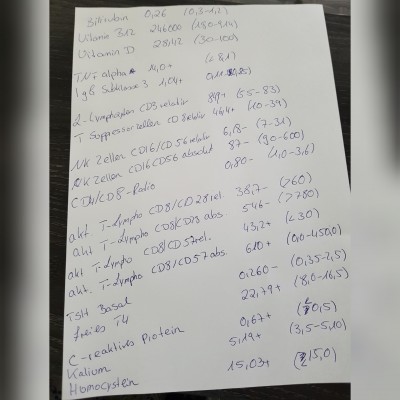 Bilirubin 0,26 (0,3-1,2)
Vitamin B12 246000 (180-914)
Vitamin D 28,42 (30-100)
TNF alpha 14,0+ (< 8,1)
IgG Subklasse 3 1,04+
2-Lymphozyten CD3 relativ 84+ (55-83)
T Suppressorzellen CD8 relativ 46,4+ (10-39)
NK Zellen CD16/CD56 relativ 6,18- (7-31)
NK Zellen CD16 CD56 absolut 87- (90-600)
CD4/CD8-Ratio 0,80- (1,0-3,6)
akt T-Lympho CD8/CD28 rel. 38,7- (>60)
akt T-Lympho CD8/CD28 abs. 546- (>780)
akt T-Lympho CD8/CD57 rel. 43,2+ (<30)
akt. T-Lympho CD8/CD57 abs. 610+ (0,0-450,0)
TSH Basal 0,260- (0,35-2,5)
freies T4 22,79+ (8,0-16,5)
C-reaktives Protein 0,67+ (0,5)
Kalium 5,19+ (3,5-5,10)
Homocystein 15,03+ (15,0)